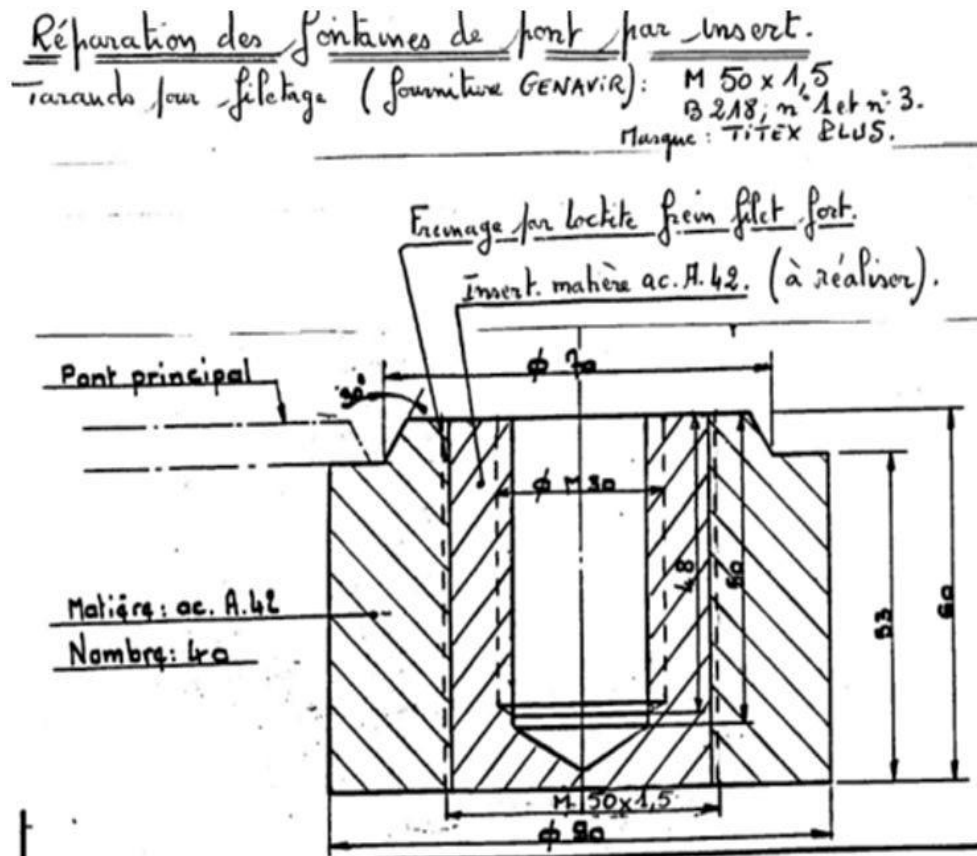 Réparation des fontaines de pont par insert.
Tarauds pour filetage (fourniture GENAVIR): M 50 x 1,5
B 218, n° 1 et n° 3.
Marque: TITEX PLUS.
Freinage par loctite frein filet fort.
Insert matière ac. A.42. (à réaliser).
ϕ 70
Pont principal
30°
ϕ M30
48
50
53
60
Matière: ac. A.42
Nombre: 40
M 50x1,5
ϕ 90